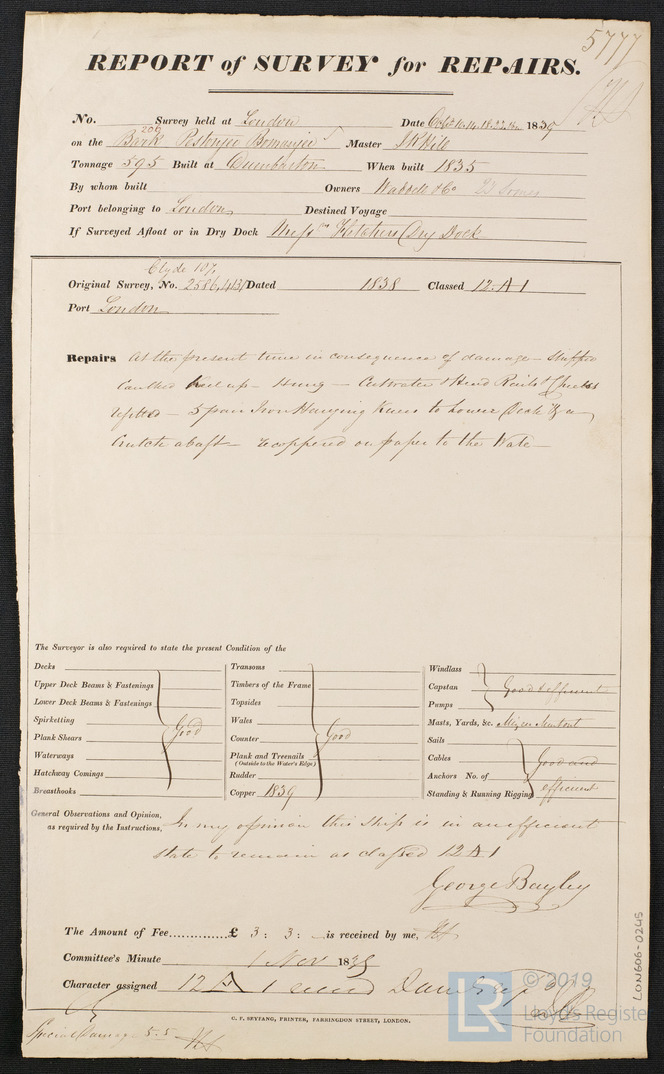 5777
REPORT of SURVEY for REPAIRS.
No. Survey held at London Date Octr 10.14.18.22 1839
on the Bark Pestonjee Bomanjee Master J R Hill
206
Tonnage 595 Built at Dumbarton When built 1835
By whom built Owners Waddell & Co
Port belonging to London Destined Voyage
If Surveyed Afloat or in Dry Dock Messrs Fletchers Dry Dock
Clyde 107
Original Survey, No. 2586,4131 Dated 1838 Classed 12 A 1
Port London
Repairs At the present time in consequence of damage - stripped
Caulked Keel up - Cutwater & Head Rails & Cheeks
- 5 pair Iron Hanging Knees to Lower Deck & a
Crutch abaft - recoppered on paper to the Wale -
The Surveyor is also required to state the present Condition of the
Decks
Upper Deck Beams & Fastenings
Lower Deck Beams & Fastenings
Spirketting
Plank Shears
Waterways
Hatchway Comings
Breasthooks
Good
Transoms
Timbers of the Frame
Topsides
Wales
Counter
Plank and Treenails
(Outside to the Water's Edge)
Rudder
Good
Copper 1839
Windlass
Capstan
Pumps
Good & efficient
Masts, Yards, &c.
Sails
Cables
Anchors No. of
Standing & Running Rigging
Good and
efficient
General Observations and Opinion,
as required by the Instructions,
In my opinion this Ship is in an efficient
state to remain as classed 12 A 1
George Bayley
The Amount of Fee.............. £ 3 : 3 : - is received by me,
Committee's Minute 1 Nov 1839
Character assigned 12 A 1
C. F. SEYFANG, PRINTER, FARRINGDON STREET, LONDON.
Special Damage 5.5
LON606-0245
LR
© 2019
Lloyd's Register
Foundation